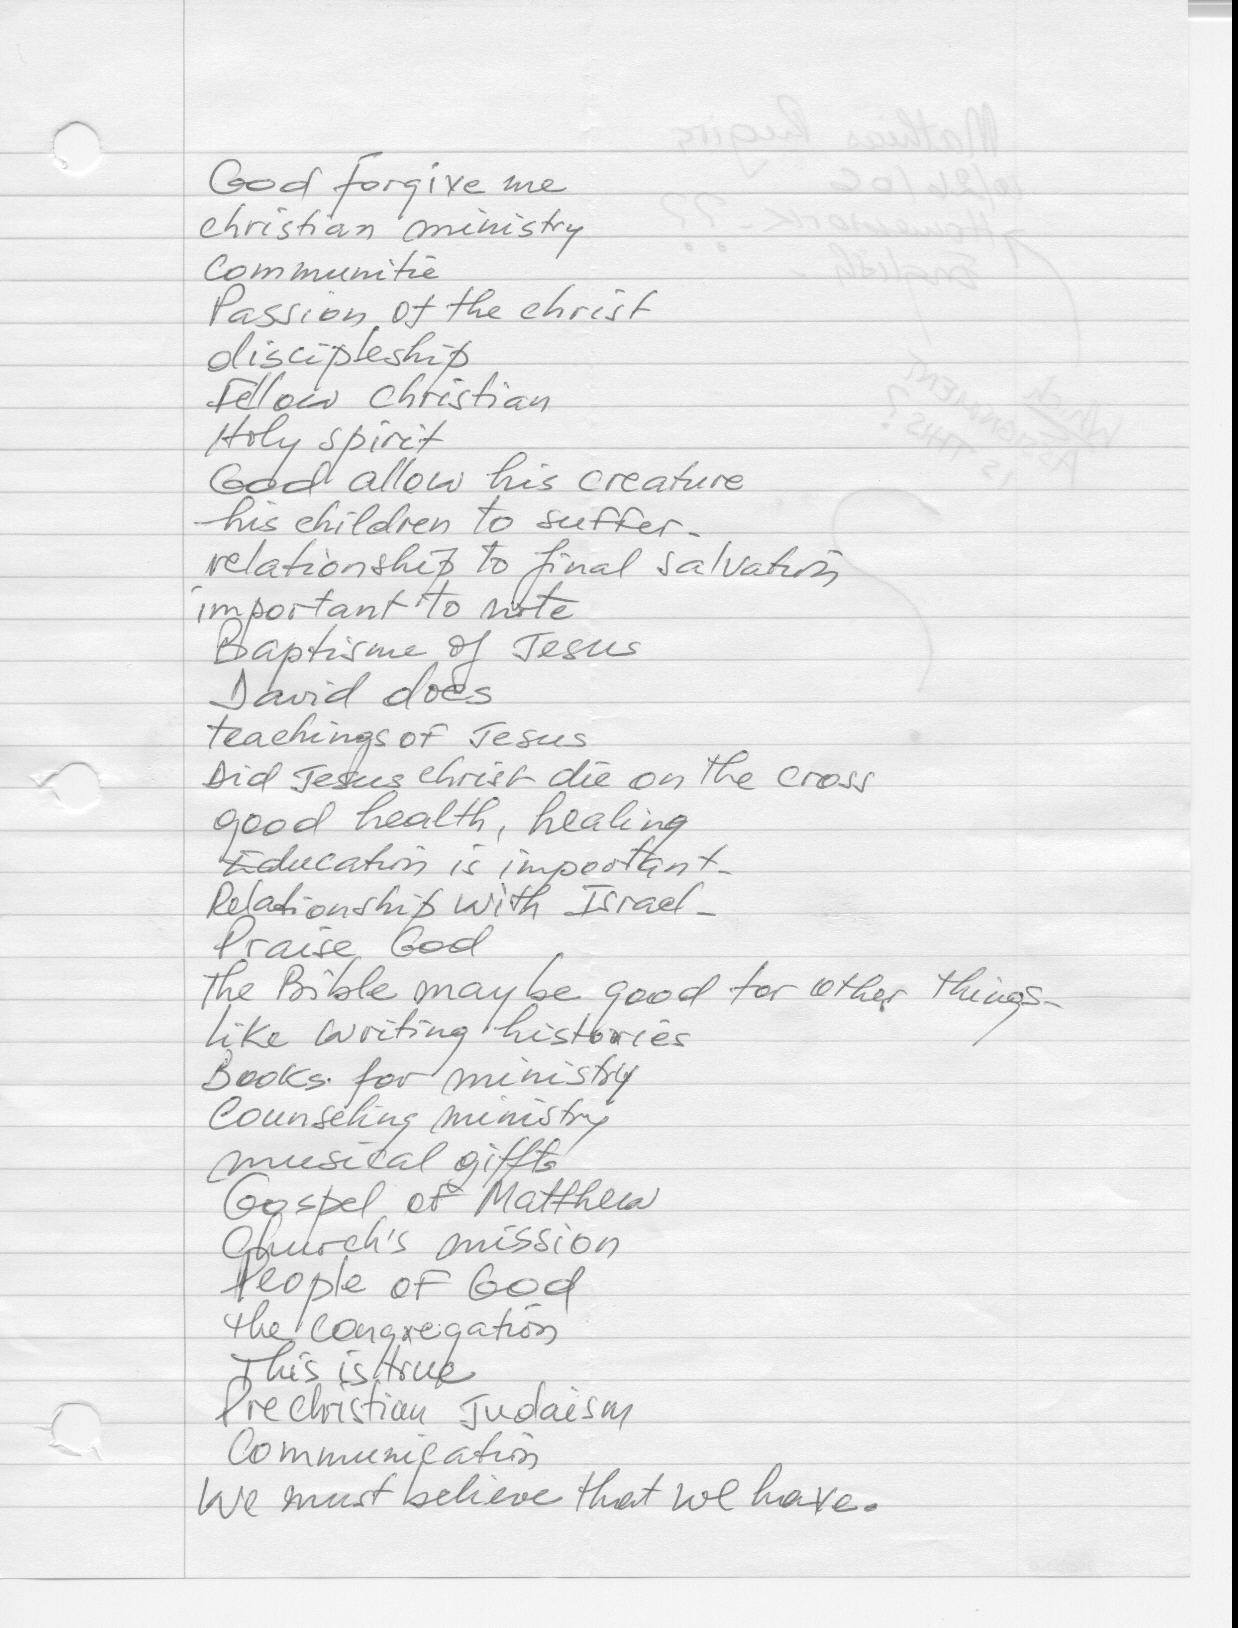 God forgive me
christian ministry
Communitie
Passion of the christ
discipleship
Fellow christian
Holy spirit
God allow his creature
his children to suffer.
relationship to final salvation
important to note
Baptisme of Jesus
David does
teachings of Jesus
Did Jesus christ die on the cross
good health, healing
Education is important.
Relationship with Israel.
Praise God
The Bible maybe good for other things.
like writing histories
Books for ministry
Counseling ministry
musical gifts
Gospel of Matthew
Church's mission
People of God
the congregation
This is true
Prechristian Judaism
Communication
We must believe that we have.
Mathias
10/26/06
Homework - ??
English
Which
ASSIGNMENT
IS THIS?